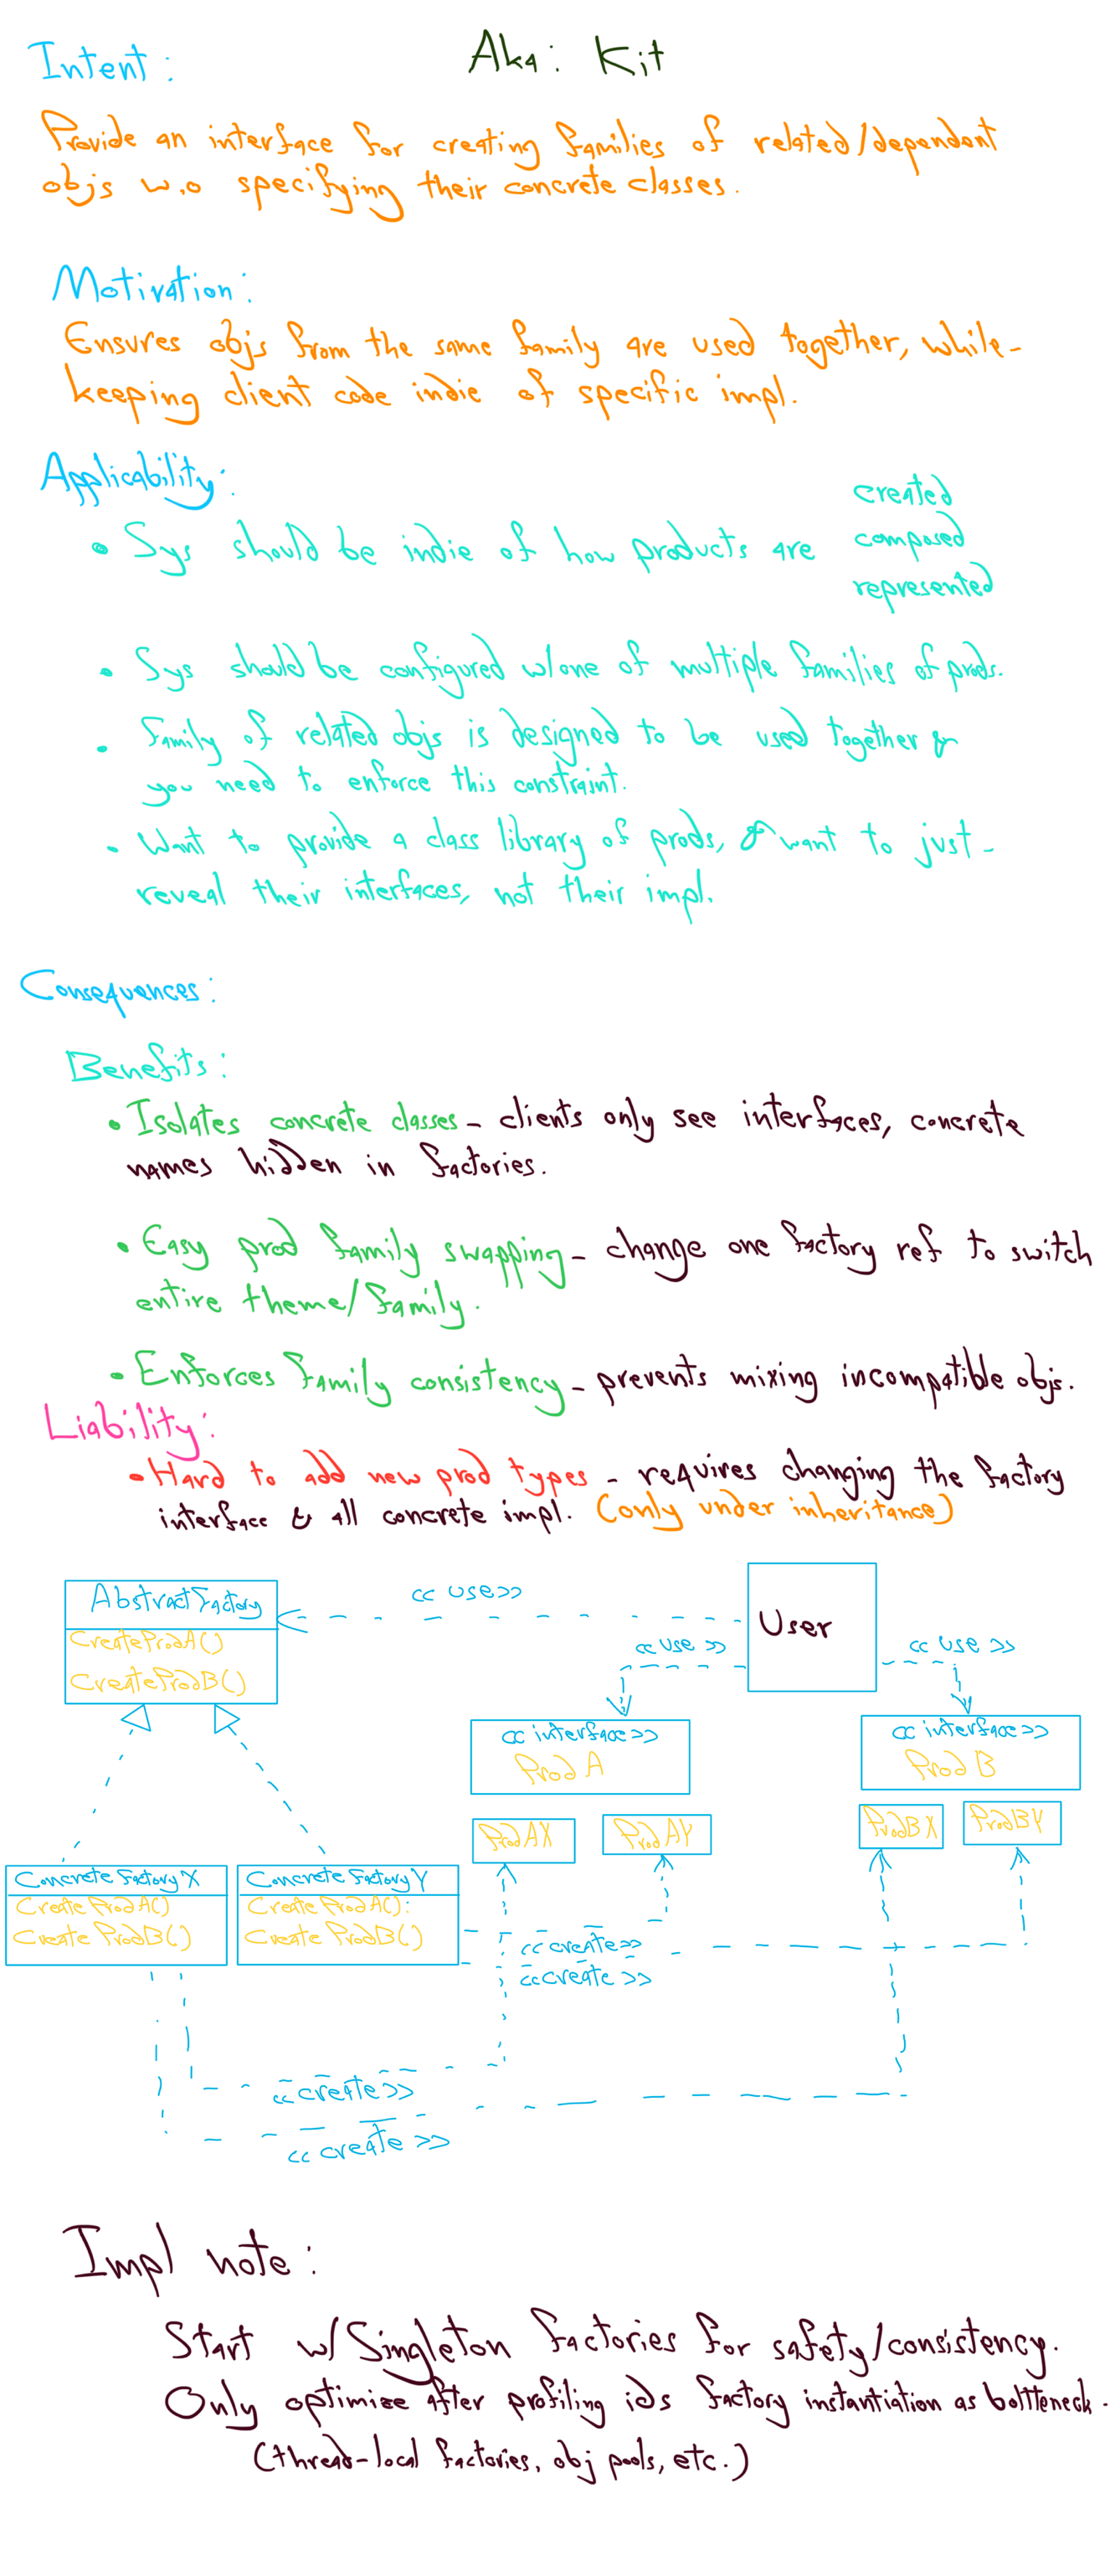 Intent :
Aka : Kit
Provide an interface for creating families of related/dependent
objs w.o specifying their concrete classes.
Motivation :
Ensures objs from the same family are used together, while-
keeping client code indie of specific impl.
Applicability :
• Sys should be indie of how products are
created
composed
represented
• Sys should be configured w/one of multiple families of prods.
• Family of related objs is designed to be used together &
you need to enforce this constraint.
• Want to provide a class library of prods, & want to just -
reveal their interfaces, not their impl.
Consequences :
Benefits :
• Isolates concrete classes - clients only see interfaces, concrete
names hidden in factories.
• Easy prod family swapping - change one factory ref to switch
entire theme/family.
• Enforces family consistency - prevents mixing incompatible objs.
Liability :
• Hard to add new prod types - requires changing the factory
interface & all concrete impl. (only under inheritance)
AbstractFactory
CreateProdA()
CreateProdB()
<< use >>
User
<< use >>
<< use >>
<< interface >>
Prod A
<< interface >>
Prod B
ProdAX
ProdAY
ProdBX
ProdBY
ConcreteFactoryX
CreateProdA()
CreateProdB()
ConcreteFactoryY
CreateProdA():
CreateProdB()
<< create >>
<< create >>
<< create >>
<< create >>
Impl note :
Start w/ Singleton factories for safety/consistency.
Only optimize after profiling ids factory instantiation as bottleneck.
(thread-local factories, obj pools, etc.)